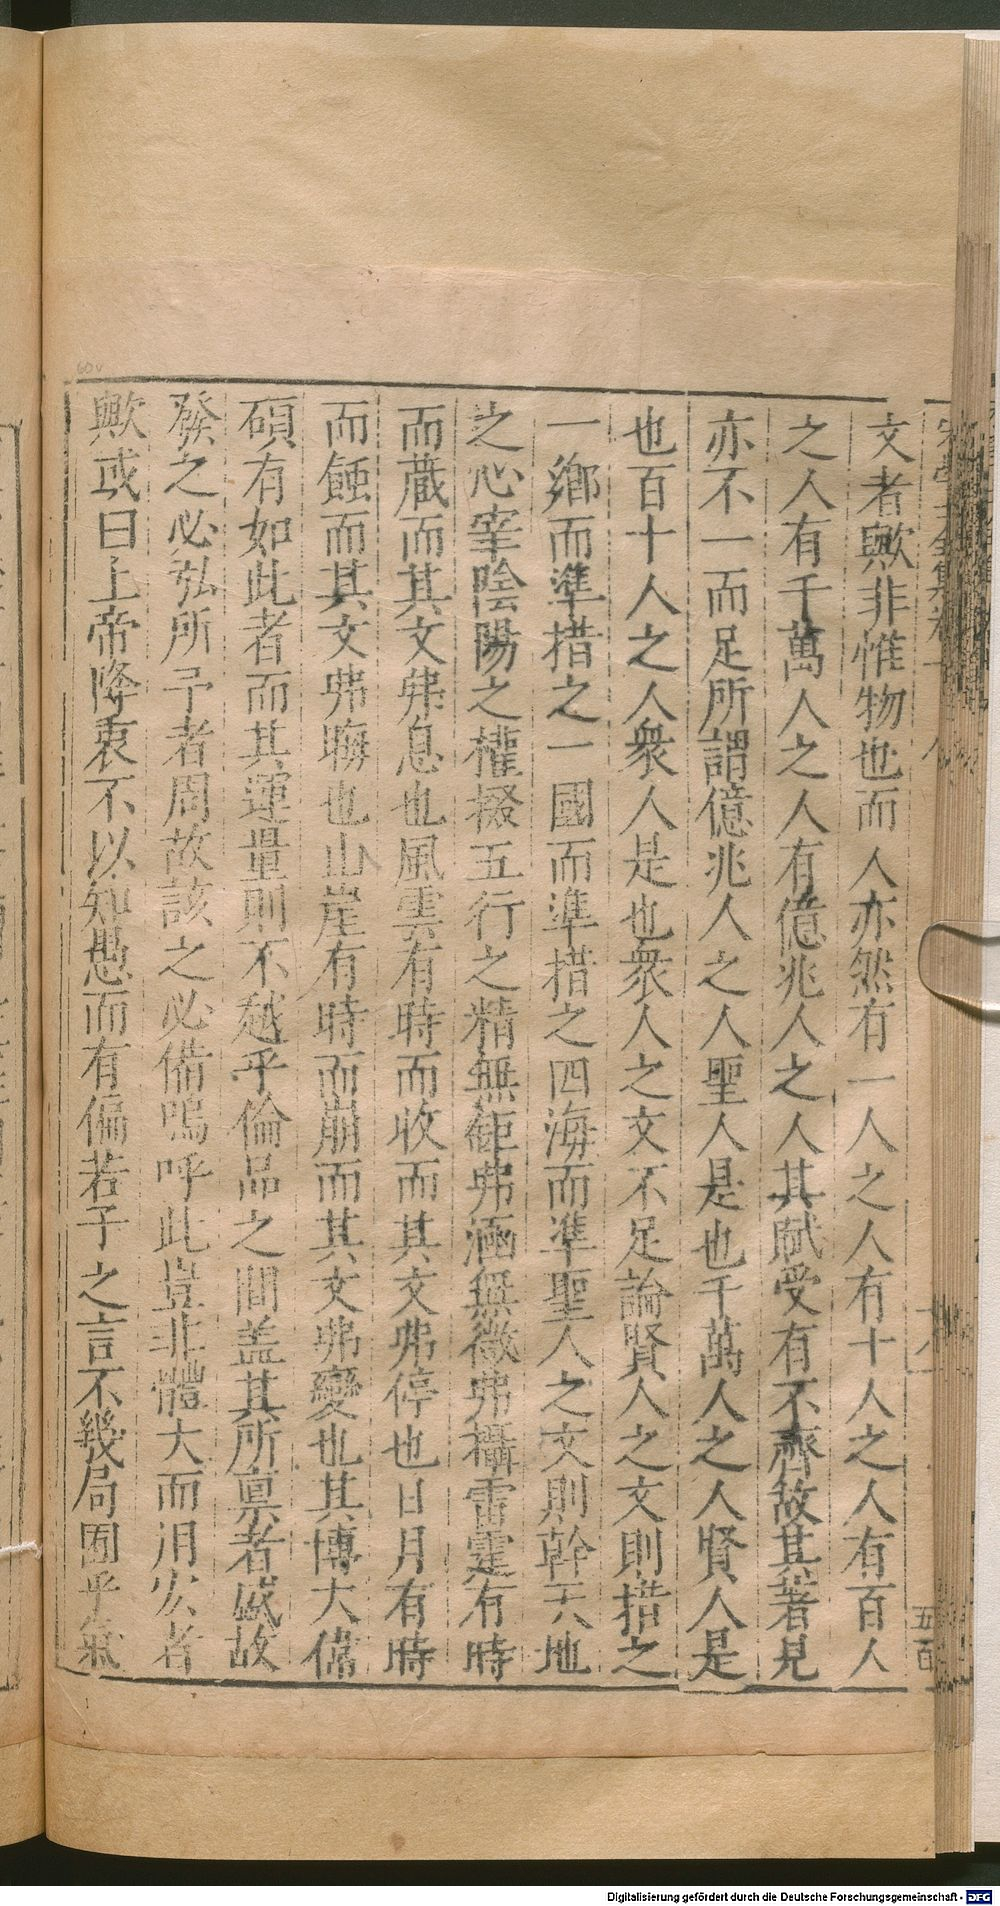 文者歟非惟物也而人亦然有一人之人有十人之人有百人
之人有千萬人之人有億兆人之人其賦受有不齊故其著見
亦不一而足所謂億兆人之人聖人是也千萬人之人賢人是
也百十人之人衆人是也衆人之文不足論賢人之文則措之
一鄉而準措之一國而準措之四海而準聖人之文則斡天地
之心宰陰陽之權掇五行之精無鉅弗涵無微弗攝雷霆有時
而蔵而其文弗息也風雲有時而收而其文弗停也日月有時
而蝕而其文弗晦也山崖有時而崩而其文弗變也其博大偉
碩有如此者而其運量則不越乎倫品之間盖其所禀者盛故
發之必弘所予者周故該之必備嗚呼此豈非體大而用宏者
歟或曰上帝降衷不以知愚而有偏若子之言不幾局囿乎氣
五百
Digitalisierung gefördert durch die Deutsche Forschungsgemeinschaft - DFG